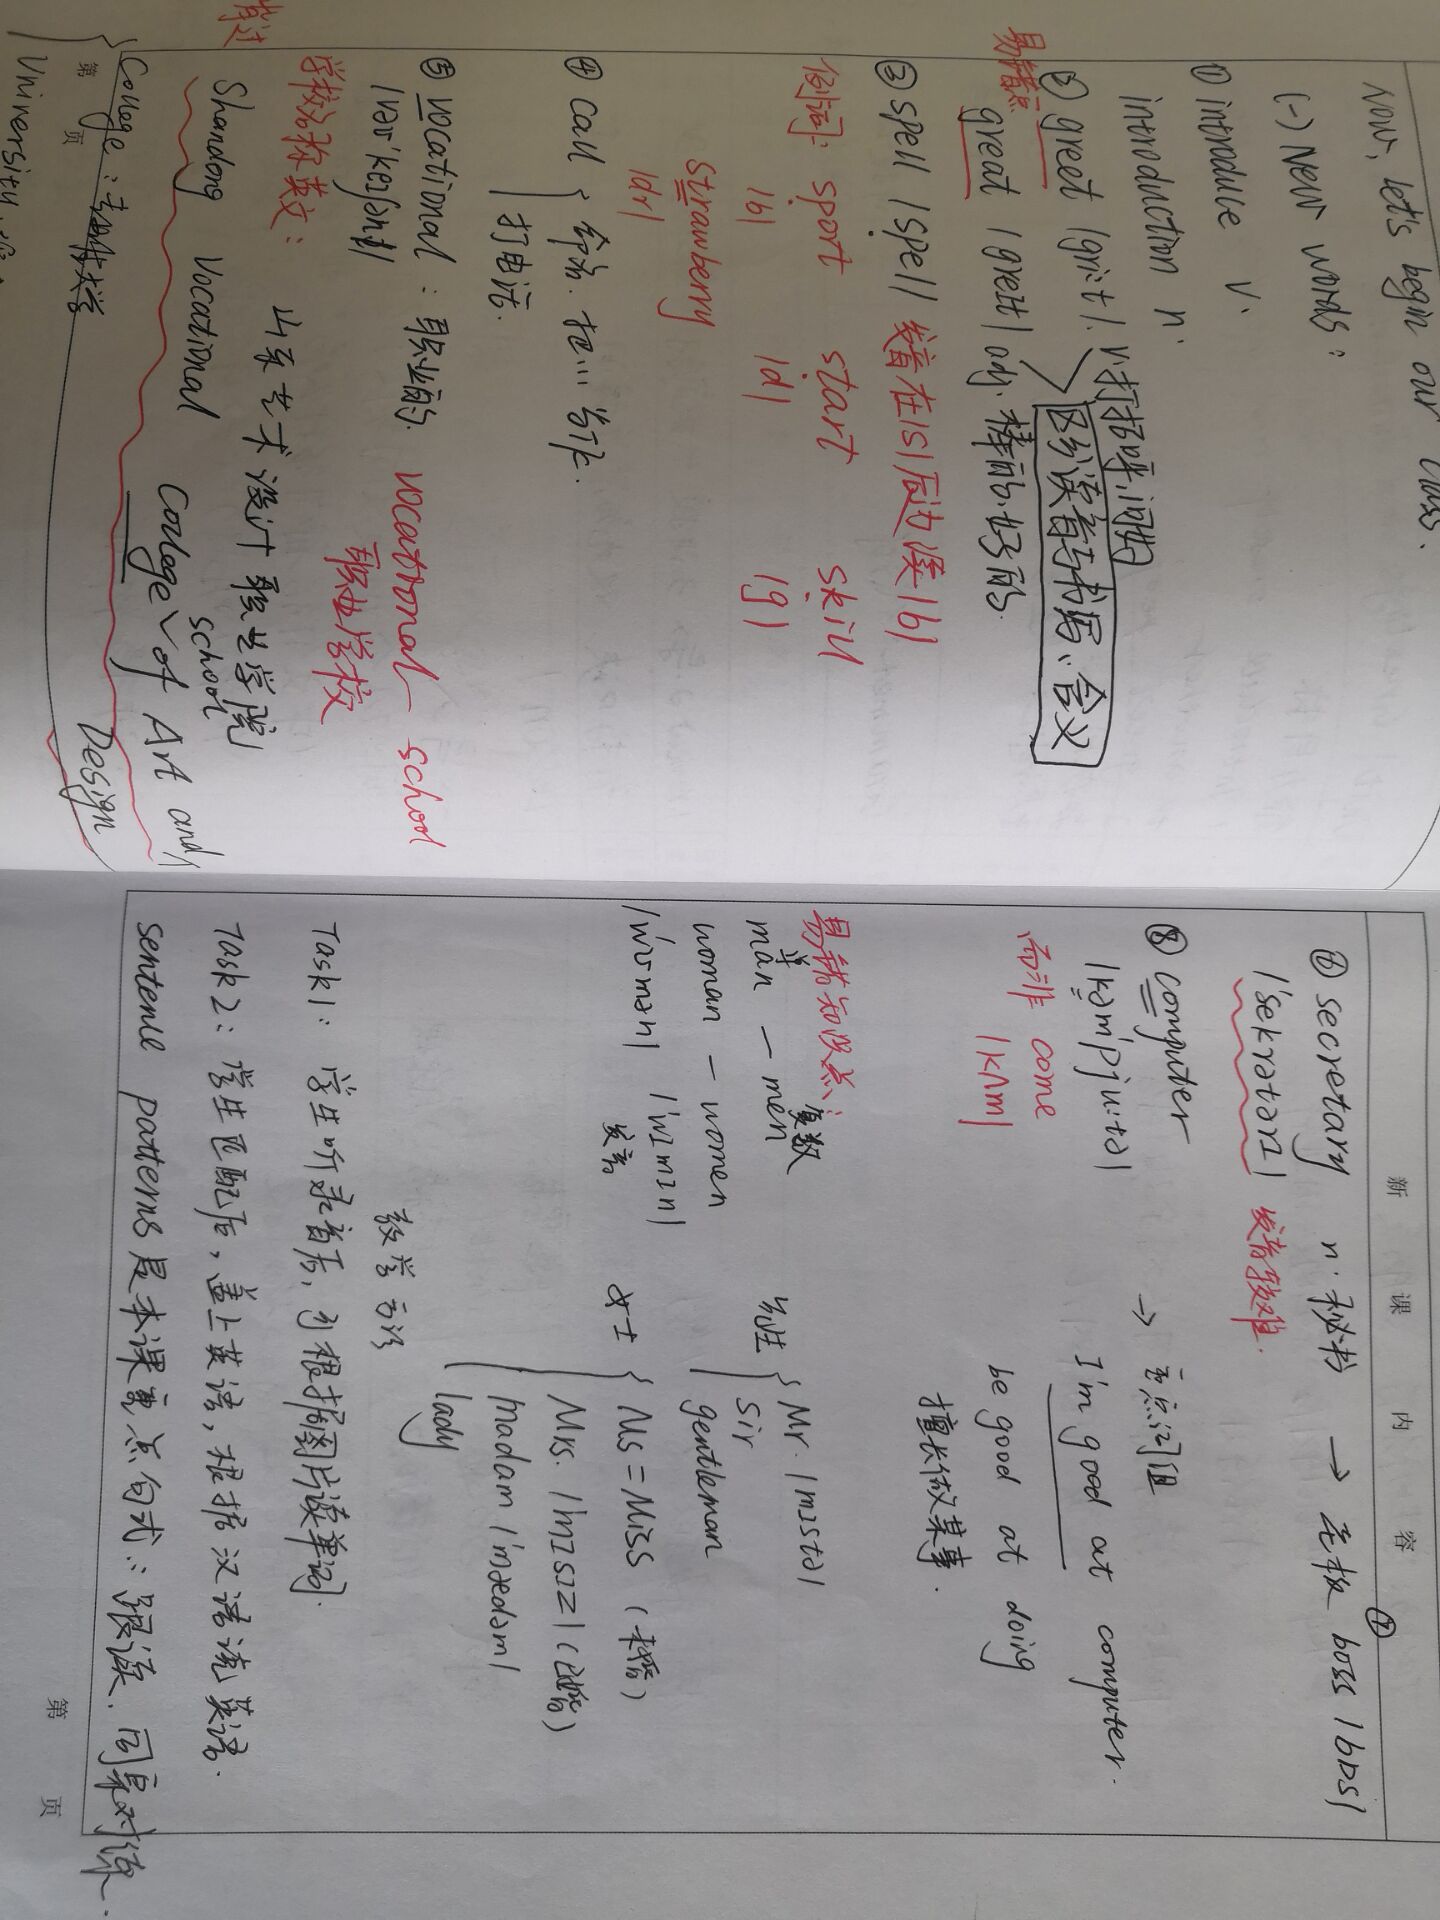 Now, let's begin our class.
(一) New words:
① introduce v.
introduction n.
易错点
② greet /griːt/ v.打招呼,问好
great /greɪt/ adj. 棒的,好的
区分读音与书写、含义
③ spell /spel/ 发音在/s/后边读/b/
例词: sport start skill
/b/ /d/ /g/
strawberry
/dr/
④ call { 称为. 把… 当作.
打电话.
⑤ vocational : 职业的. vocational school
职业学校
学校名称英文:
山东艺术设计职业学院
school
Shandong Vocational College of Art and
Design
College:
University:
第 页
新 课 内 容
⑥ secretary n. 秘书 → 老板 ⑦ boss /bɒs/
/ˈsekrətərɪ/ 发音较难.
⑧ computer → 重点词组
/kəmˈpjuːtə/ I'm good at computer.
而非 come be good at doing
/kʌm/ 擅长做某事.
易错知识点:
单 复数
man — men
woman — women
/ˈwʊmən/ /ˈwɪmɪn/
发音
先生 { Mr. /mɪstə/
Sir
gentleman
女士 { Ms = Miss (未婚)
Mrs. /ˈmɪsɪz/ (已婚)
madam /ˈmædəm/
lady
教学方法
Task1: 学生听录音后,可根据图片读单词.
Task2: 学生匹配后,盖上英语,根据汉语说英语.
sentence patterns是本课重点句式:跟读.同桌对练.
第 页